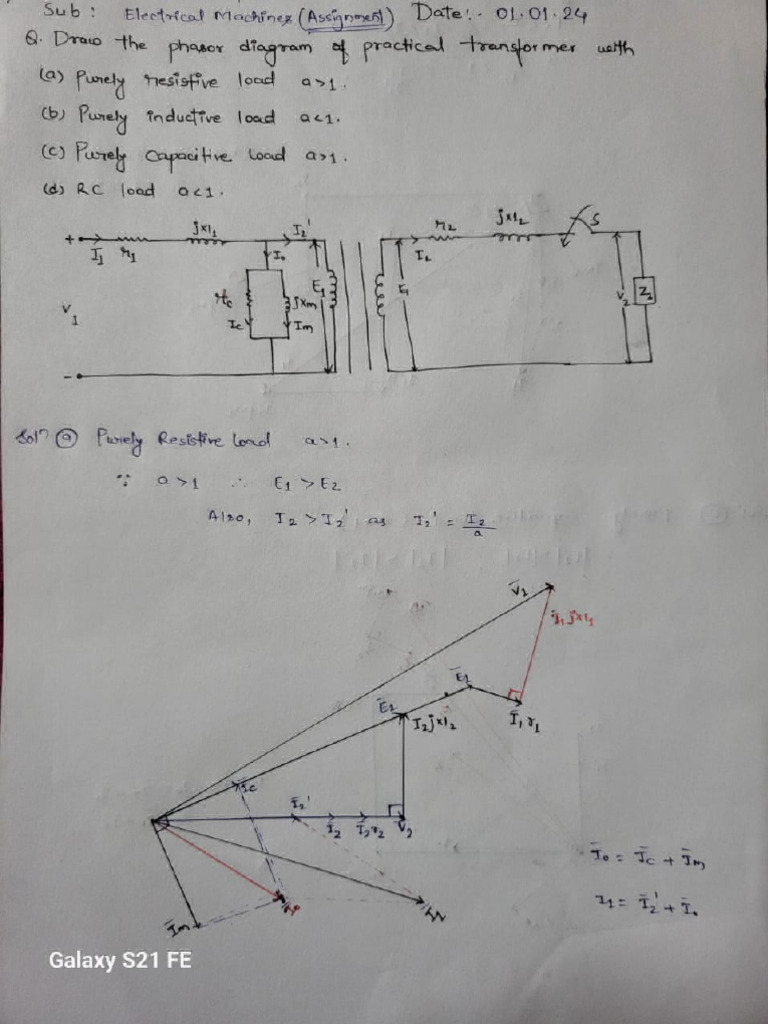 Sub : Electrical Machines (Assignment) Date :- 01.01.24
Q. Draw the phasor diagram of practical transformer with
(a) Purely resistive load a>1.
(b) Purely inductive load a<1.
(c) Purely Capacitive load a>1.
(d) RC load a<1.
+ I1 r1 jxl1 I2' I2 r2 jxl2 S
I0
rc Ic jxm Im E1 E1 V2 Z2
V1
-
Soln (a) Purely Resistive Load a>1.
∵ a>1 ∴ E1 > E2
Also, I2 > I2' as I2' = I2/a
I1 jxl1
E1
E2 I2jxl2 I1 r1
Ic
I2' I2 I2r2 V2
I0 = Ic + Im
I1 = I2' + I0
Im I0
Galaxy S21 FE